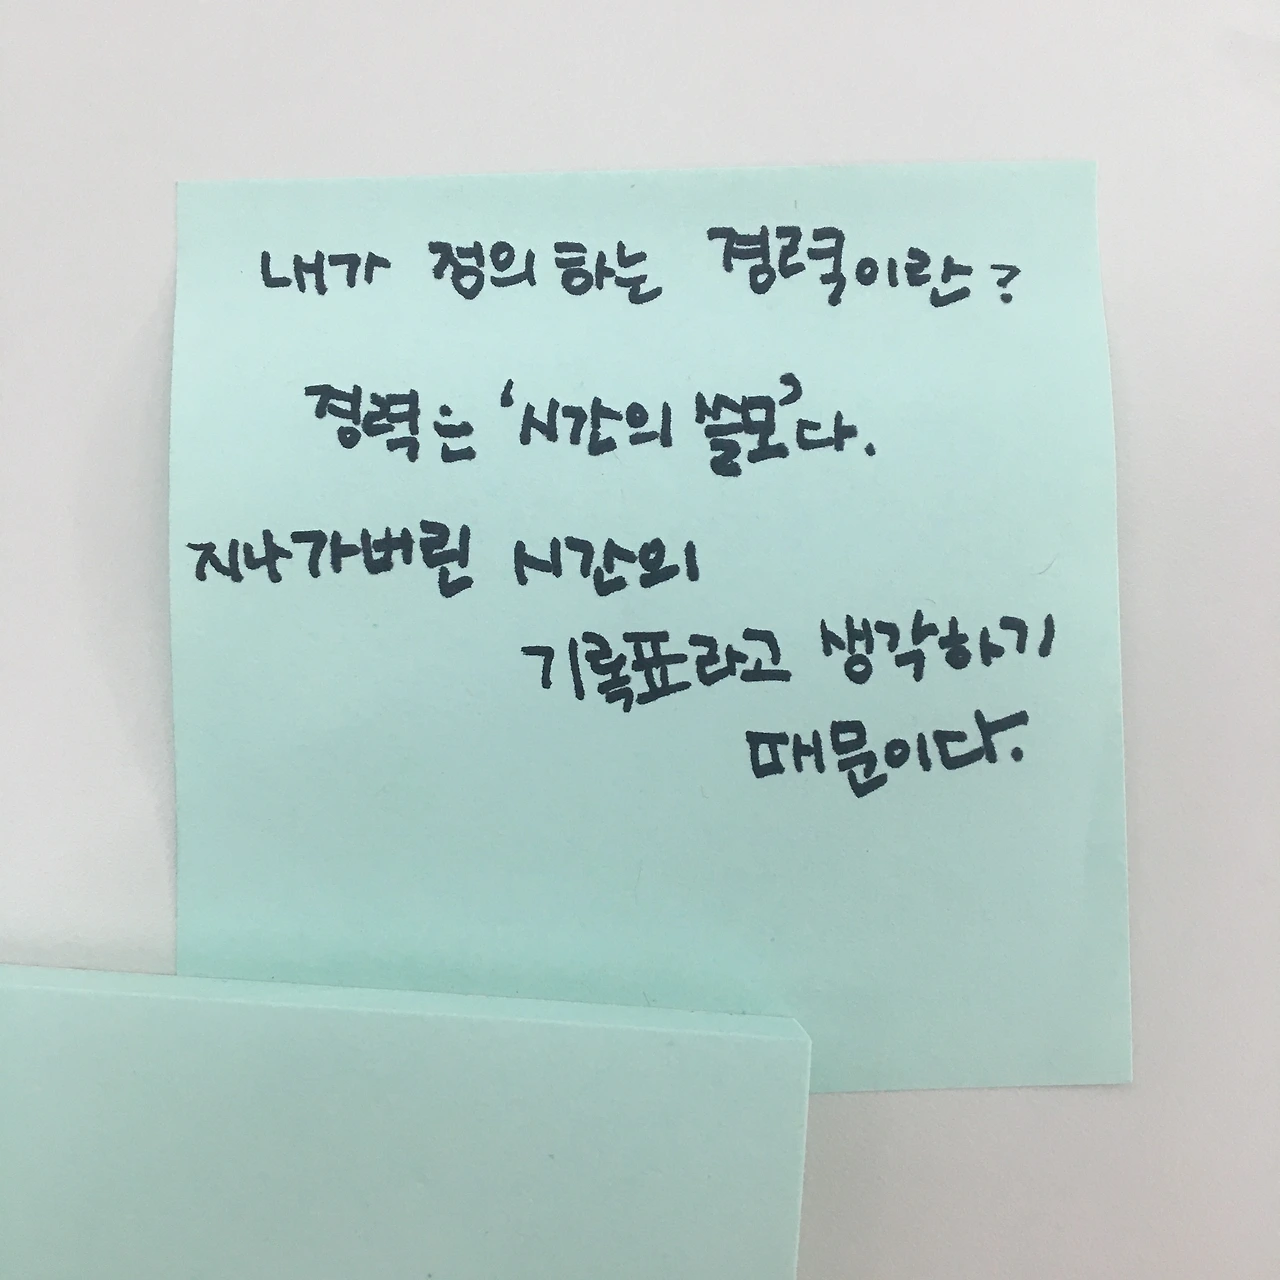 내가 정의하는 경력이란?
경력은 '시간의 쓸모'다.
지나가버린 시간의
기록표라고 생각하기
때문이다.